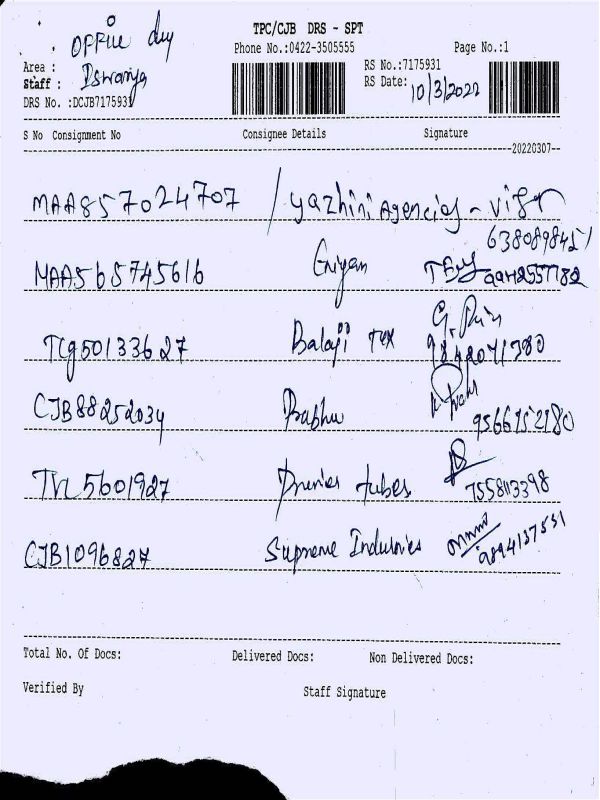 OFFICE
TPC/CJB DRS - SPT
Phone No.:0422-3505555 Page No.:1
Area :
Staff : Iswarya
DRS No. :DCJB7175931
RS No.:7175931
RS Date: 10/3/2022
S No Consignment No Consignee Details Signature
20220307
MAA857024707 / yazhini Agencies -
6380898451
MAA565745616
TCg50133627 Balaji Tex
CJB88252034 Prabhu
9566152180
TVL5601927 tubes 7558113398
CJB1096827 Supreme Industries 9894137531
Total No. Of Docs: Delivered Docs: Non Delivered Docs:
Verified By Staff Signature